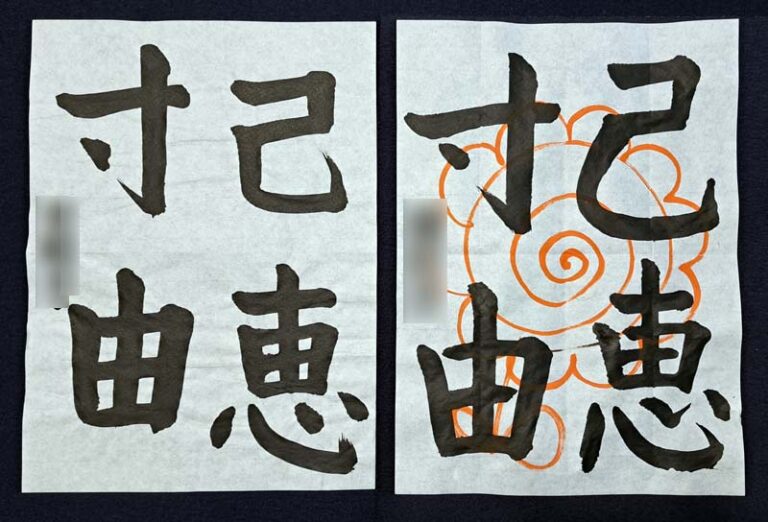 己恵
寸由
己恵
寸由